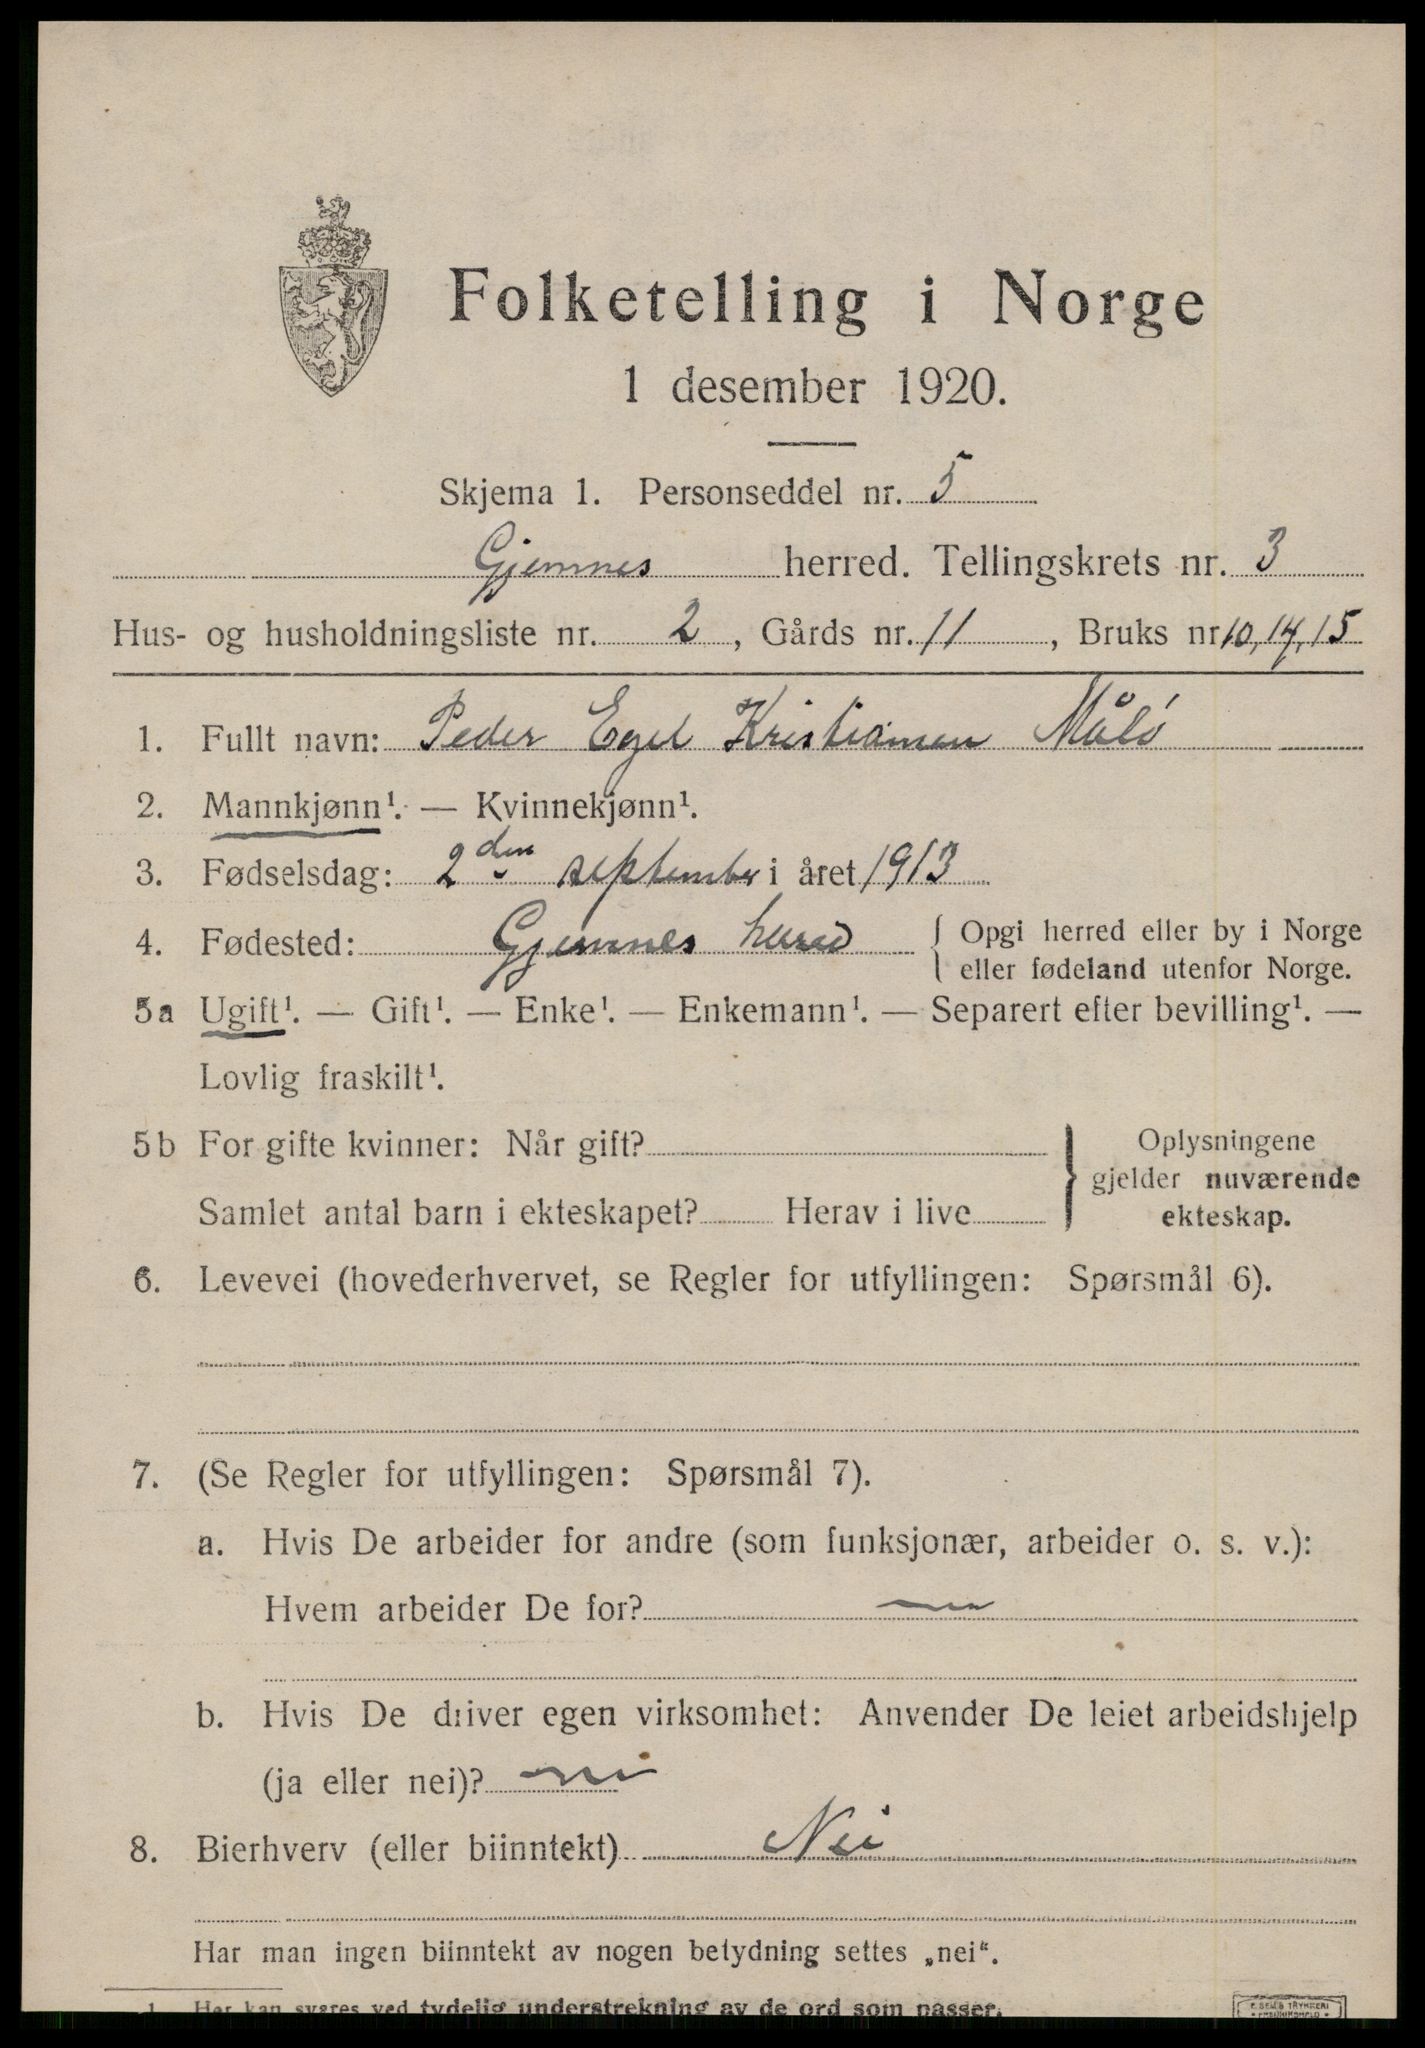 Folketelling i Norge
1 desember 1920.
Skjema 1. Personseddel nr. 5
Gjemnes herred. Tellingskrets nr. 3
Hus- og husholdningsliste nr. 2, Gårds nr. 11, Bruks nr 10, 14, 15
1. Fullt navn: Peder Egel Kristiansen Målö
2. Mannkjønn¹. — Kvinnekjønn¹.
3. Fødselsdag: 2den september i året 1913
4. Fødested: Gjemnes hered { Opgi herred eller by i Norge
eller fødeland utenfor Norge.
5a Ugift¹. — Gift¹. — Enke¹. — Enkemann¹. — Separert efter bevilling¹. —
Lovlig fraskilt¹.
5b For gifte kvinner: Når gift?
Samlet antal barn i ekteskapet? Herav i live
} Oplysningene
gjelder nuværende
ekteskap.
6. Levevei (hovederhvervet, se Regler for utfyllingen: Spørsmål 6).
7. (Se Regler for utfyllingen: Spørsmål 7).
a. Hvis De arbeider for andre (som funksjonær, arbeider o. s. v.):
Hvem arbeider De for?
b. Hvis De driver egen virksomhet: Anvender De leiet arbeidshjelp
(ja eller nei)?
8. Bierhverv (eller biinntekt) Nei
Har man ingen biinntekt av nogen betydning settes „nei“.
1 Her kan svares ved tydelig understrekning av de ord som passer.